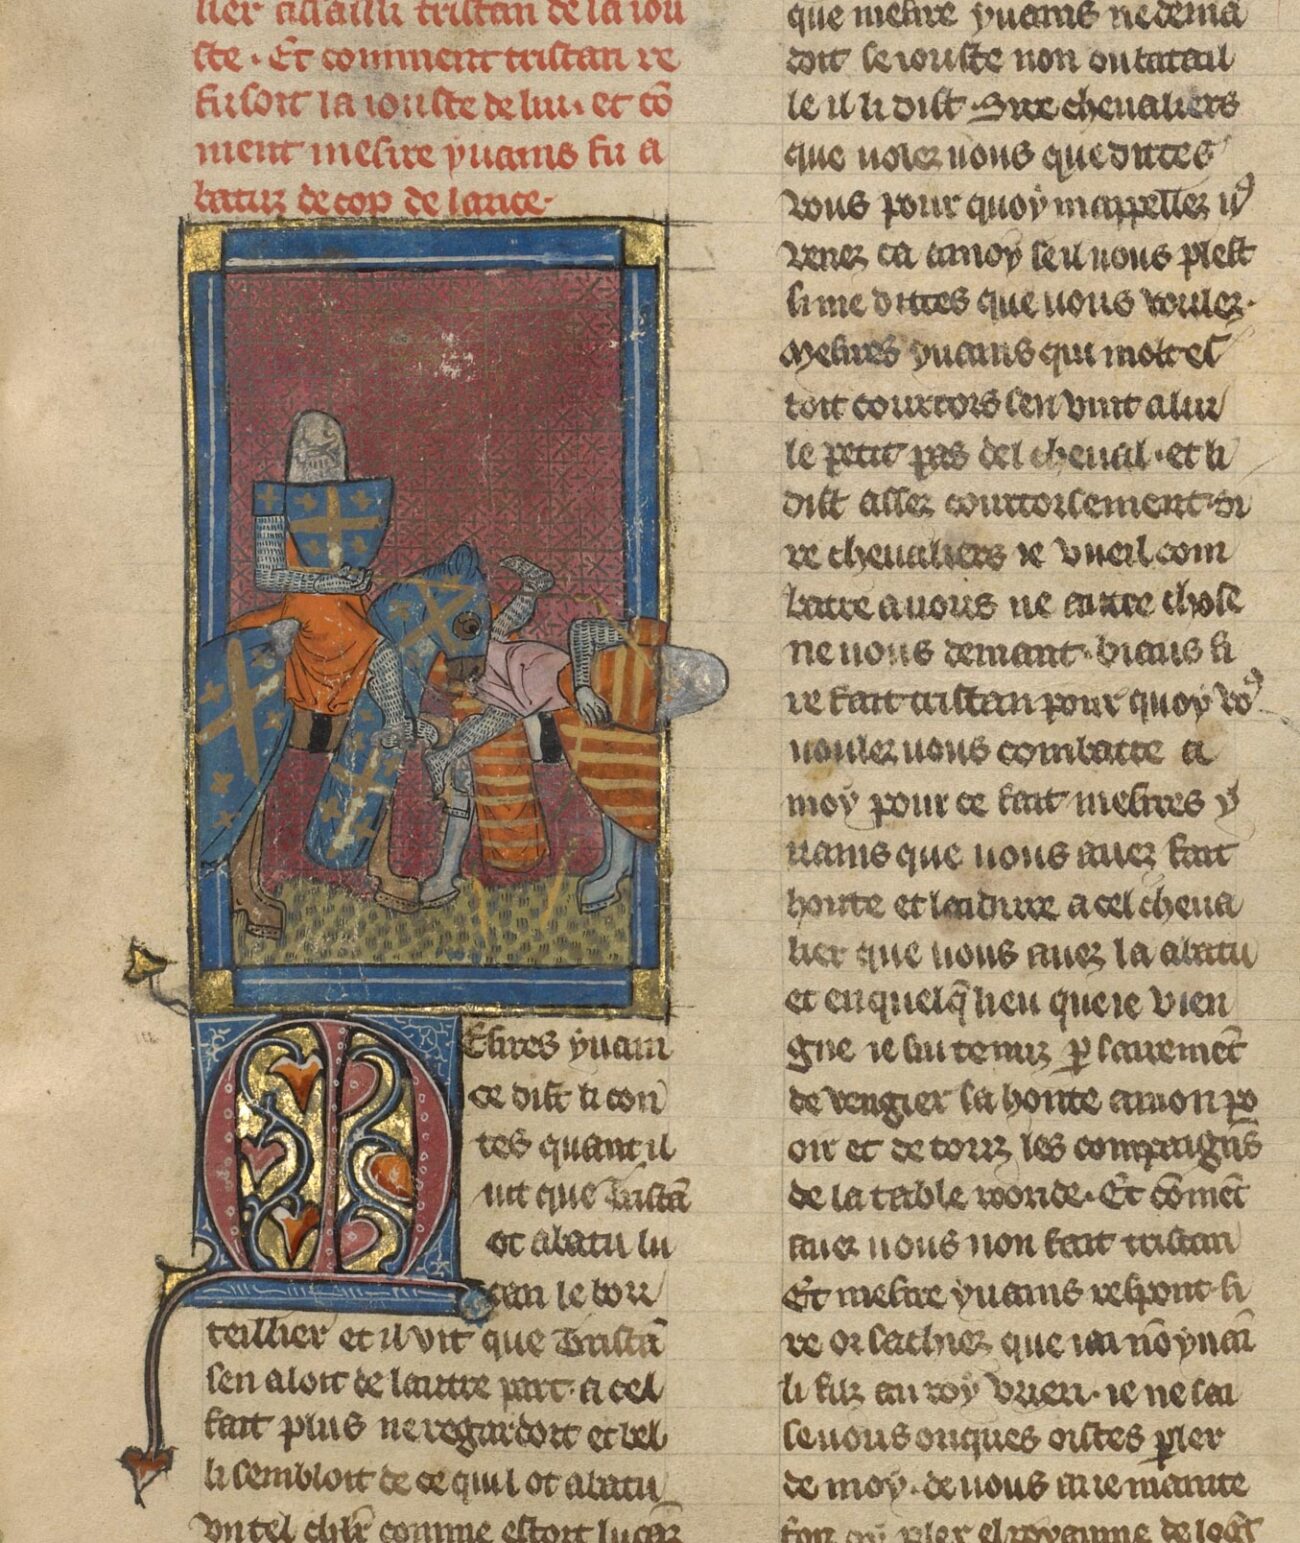 lier assailli tristan de la iou
ste. Et comment tristan re
fusoit la iouste de lui. et cō
ment mesire yuains fu a
batuz de cop de lance.
Esires yuain
ce dist li con
tes quant il
uit que Tristā
ot abatu lu
can le bou
teillier et il vit que Tristā
sen aloit de lautre part. a cel
fait plus ne regardoit et bel
li sembloit de ce quil ot abatu
vn tel chlr comme estoit lucan
que mesire yuains ne dema
doit se iouste non ou batail
le il li dist. Sire cheualiers
que uolez uous que dittes
vous pour quoy mappellez uꝯ
venez ca a moy se il uous plest
si me dittes que uous voulez.
Mesires yuains qui molt es
toit courtois sen vint a lui
le petit pas del cheual. et li
dist assez courtoisement. si
re cheualiers ie vueil com
batre a uous ne autre chose
ne uous demant. biaus si
re fait tristan pour quoy voꝯ
uoulez uous combatre a
moy pour ce fait mesires y
uains que uous auez fait
honte et laidure a cel cheua
lier que uous auez la abatu
et en quelq̄ lieu que ie vien
gne ie sui tenuz ꝑ sairemēt
de vengier sa honte a mon po
oir et de touz les compaignōs
de la table reonde. Et cōmēt
auez uous non fait tristan
Et mesire yuains respont. si
re or sachiez que iai nō yuaī
li filz au roy vrien. ie ne sai
se uous onques oistes ꝑler
de moy. de uous ai ie mainte
fois oy ꝑler el royaume de logres